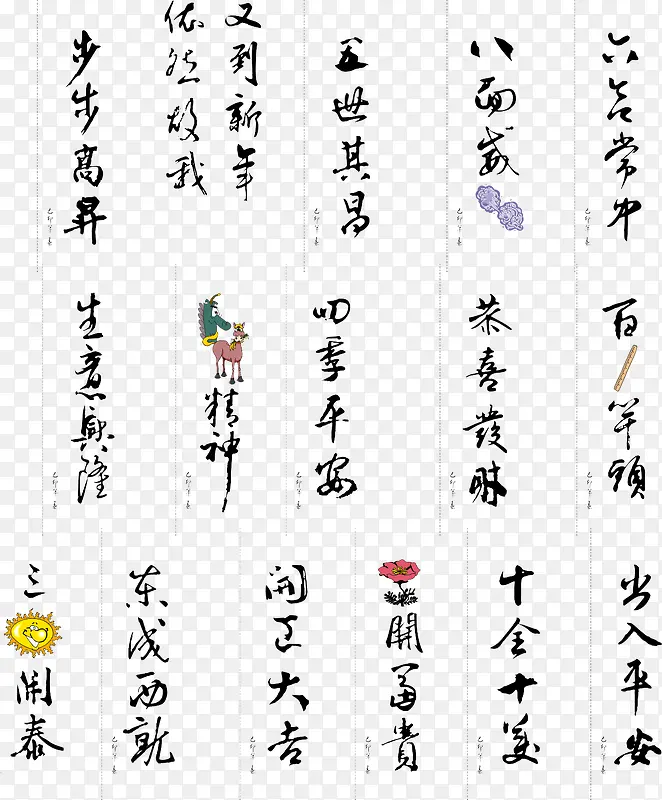 步步高昇
又到新年
依然故我
五世其昌
八面威
六合常中
生意興隆
精神
四季平安
恭喜發財
百竿頭
三開泰
東成西就
開正大吉
開富貴
十全十美
出入平安